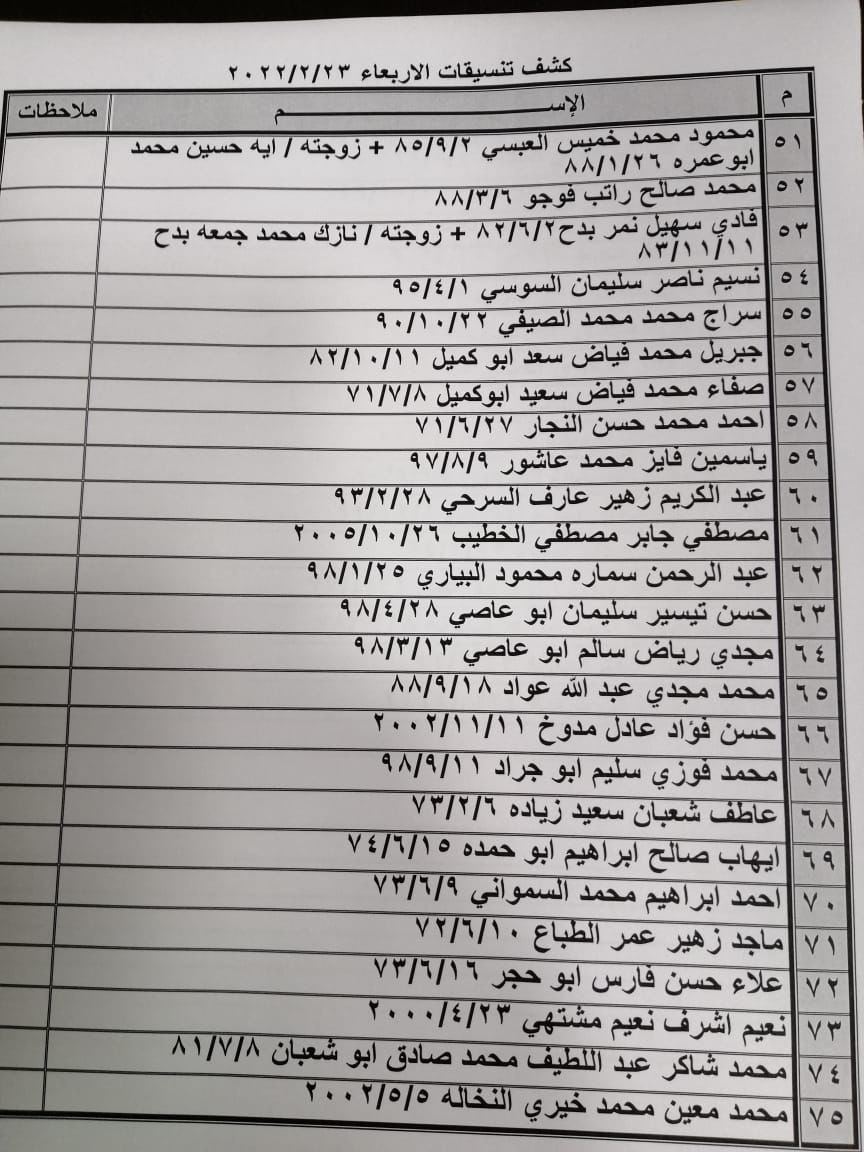 كشف تنسيقات الاربعاء ٢٠٢٢/٢/٢٣
م الإســـــــــــم ملاحظات
٥١ محمود محمد خميس العبسي ٨٥/٩/٢ + زوجته / ايه حسين محمد
ابوعمره ٨٨/١/٢٦
٥٢ محمد صالح راتب فوجو ٨٨/٣/٦
٥٣ فادي سهيل نمر بدح٨٢/٦/٢ + زوجته / نازك محمد جمعه بدح
٨٣/١١/١١
٥٤ نسيم ناصر سليمان السوسي ٩٥/٤/١
٥٥ سراج محمد محمد الصيفي ٩٠/١٠/٢٢
٥٦ جبريل محمد فياض سعد ابو كميل ٨٢/١٠/١١
٥٧ صفاء محمد فياض سعيد ابوكميل ٧١/٧/٨
٥٨ احمد محمد حسن النجار ٧١/٦/٢٧
٥٩ ياسمين فايز محمد عاشور ٩٧/٨/٩
٦٠ عبد الكريم زهير عارف السرحي ٩٣/٢/٢٨
٦١ مصطفي جابر مصطفي الخطيب ٢٠٠٥/١٠/٢٦
٦٢ عبد الرحمن سماره محمود البياري ٩٨/١/٢٥
٦٣ حسن تيسير سليمان ابو عاصي ٩٨/٤/٢٨
٦٤ مجدي رياض سالم ابو عاصي ٩٨/٣/١٣
٦٥ محمد مجدي عبد الله عواد ٨٨/٩/١٨
٦٦ حسن فؤاد عادل مدوخ ٢٠٠٢/١١/١١
٦٧ محمد فوزي سليم ابو جراد ٩٨/٩/١١
٦٨ عاطف شعبان سعيد زياده ٧٣/٢/٦
٦٩ ايهاب صالح ابراهيم ابو حمده ٧٤/٦/١٥
٧٠ احمد ابراهيم محمد السمواني ٧٣/٦/٩
٧١ ماجد زهير عمر الطباع ٧٢/٦/١٠
٧٢ علاء حسن فارس ابو حجر ٧٣/٦/١٦
٧٣ نعيم اشرف نعيم مشتهي ٢٠٠٠/٤/٢٣
٧٤ محمد شاكر عبد اللطيف محمد صادق ابو شعبان ٨١/٧/٨
٧٥ محمد معين محمد خيري النخاله ٢٠٠٢/٥/٥